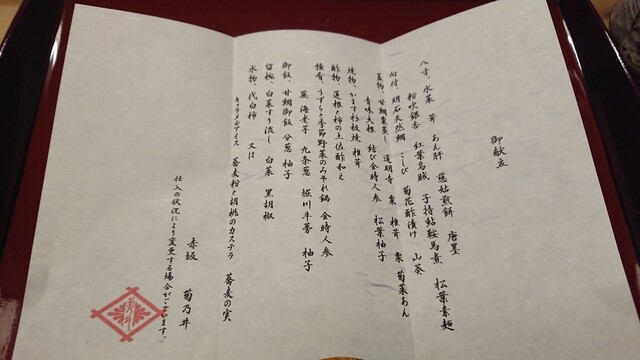 御献立
八寸、水菜 芹 あん肝 慈姑煎餅 唐墨
粉吹銀杏 紅葉烏賊 子持鮎鞍馬煮 松葉素麺
向付、明石天然鯛 こしび 菊花酢漬け 山葵
蓋物、甘鯛栗蒸し 道明寺 栗 椎茸 栗 菊菜あん
青味大根 結び金時人参 松葉柚子
焼物、かます杉板焼 椎茸
酢物、蓮根と柿の土佐酢和え
強肴、うずらと季節野菜のみぞれ鍋 金時人参
蕪 海老芋 九条葱 堀川牛蒡 柚子
御飯、甘鯛御飯 分葱 柚子
留椀、白菜すり流し 白菜 黒胡椒
水物、代白柿 又は
キャラメルアイス 蕎麦粉と胡桃のカステラ 蕎麦の実
赤坂 菊乃井
仕入の状況により変更する場合がございます。